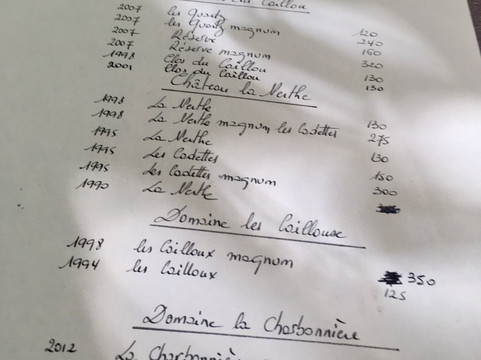 du Caillou
2007 les Quartz 120
2007 les Quartz magnum 240
2007 Réserve 160
2007 Réserve magnum 320
1998 Clos du Caillou 130
2001 Clos du Caillou 130
Château la Nerthe
1998 La Nerthe 130
1998 La Nerthe magnum les Cadettes 275
1995 La Nerthe 130
1995 Les Cadettes 150
1995 les Cadettes magnum 300
1990 La Nerthe
Domaine les Cailloux
1998 les Cailloux magnum 350
1994 les Cailloux 125
Domaine la Charbonnière
2012 La Charbonnière